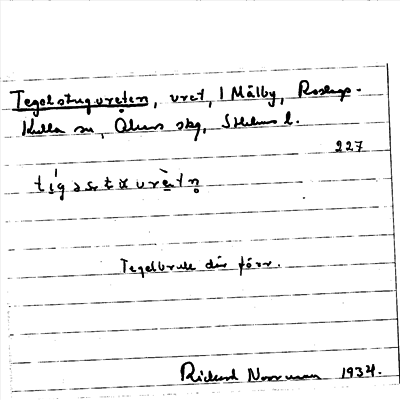 Tegelstuguvreten, vret, 1 Målby, Roslags-
Kulla sn, Åkers skg, Sthlms l.
227
Tegelbruk där förr.
Richard Norrman 1934.